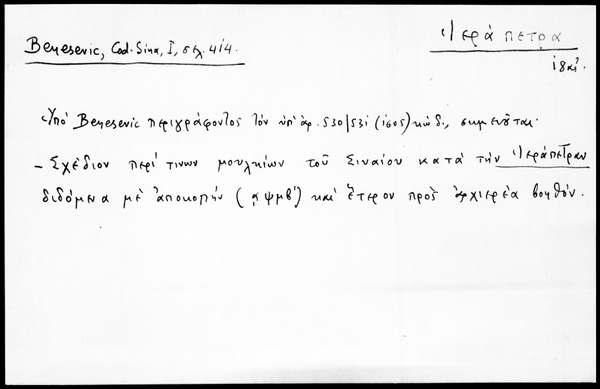 Benesevic, Cod. Sina, I, σελ. 414.
Ἱεράπετρα
ἰδαί.
Ὑπό Benesevic περιγράφοντος τόν ὑπ' ἀρ. 530/531 (ἰδος) κώδ., σημειοῦται·
– Σχέδιον περί τινων μουλκίων τοῦ Σιναίου κατά τήν Ἱεράπετραν
διδόμενα μέ ἀποκοπήν (͵αψμβ') καί ἕτερον πρός ἀρχιερέα βοηθόν.